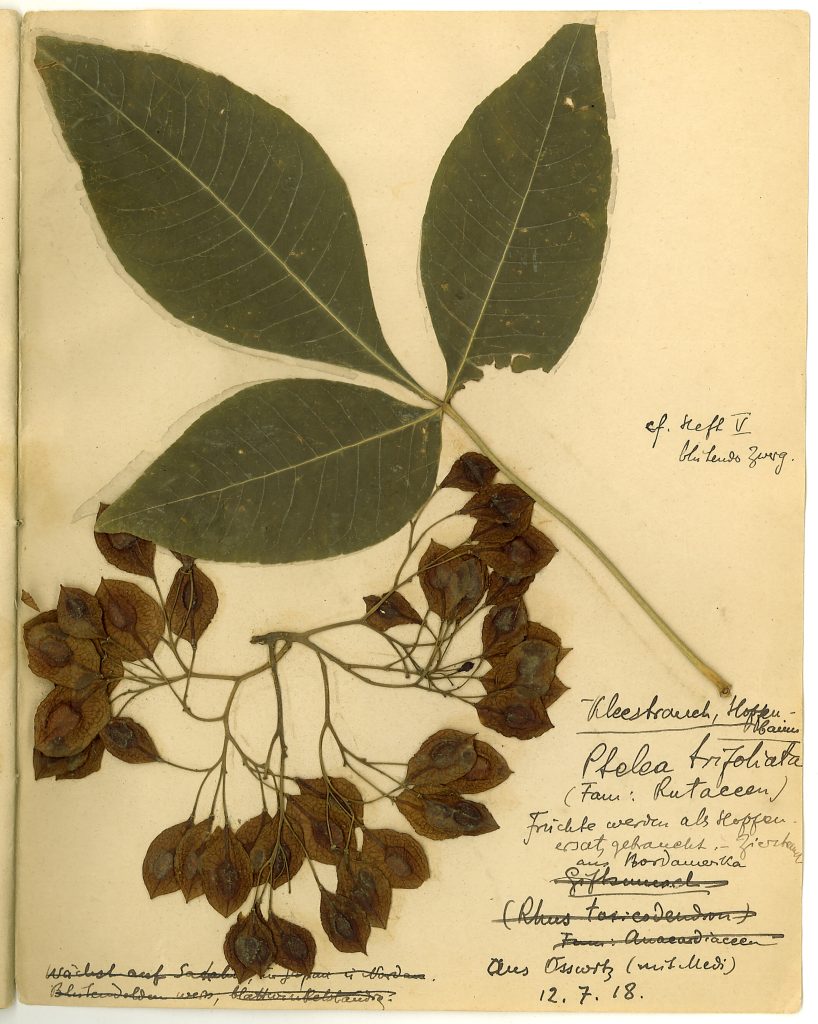 cf. Heft V
blühender Zweig.
Kleestrauch, Hopfen-
baum
Ptelea trifoliata
(Fam: Rutaceen)
Früchte werden als Hopfen-
ersatz gebraucht. - Zierstrauch
aus Nordamerika
Giftsumach
(Rhus toxicodendron)
Fam: Anacardiaceen
Aus Osswitz (mit Medi)
12. 7. 18.
wächst auf in Japan u Norden.
Blütendolden weiss, blattwinkelständig.